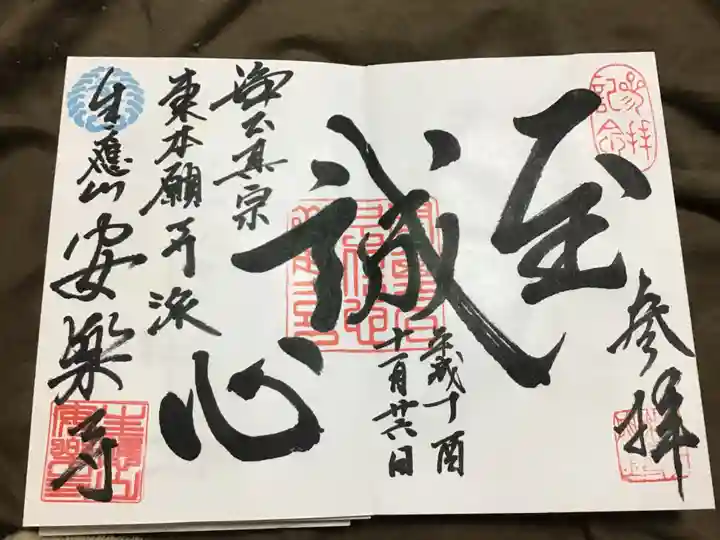 参拝記念
参拝
至
誠
心
平成丁酉
十一月廿六日
浄土真宗
東本願寺派
生應山安樂寺